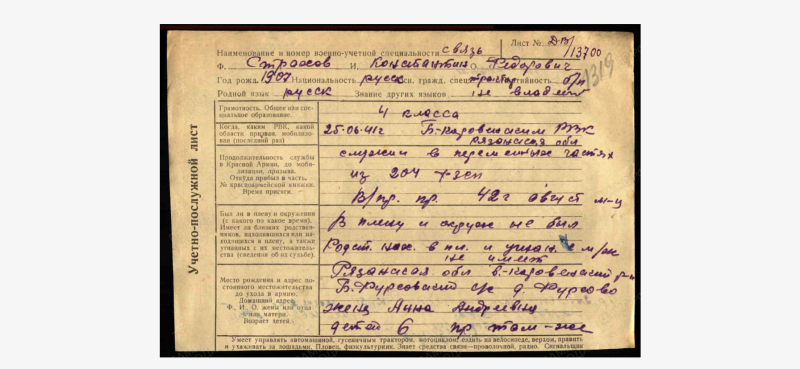 Лист № ДВ/13700
Наименование и номер военно-учетной специальности связь
1319
Ф. Страхов И. Константин О. Федорович
Год рожд. 1907 Национальность русск Осн. гражд. спец. Партийность б/п
Родной язык русск Знание других языков не владеет
Учетно-послужной лист
Грамотность. Общее или специальное образование.
4 класса
Когда, каким РВК, какой области призван, мобилизован (последний раз)
25.06.41г Б-Каровенским РВК
Рязанская обл
Продолжительность службы в Красной Армии, до мобилизации, призыва.
Откуда прибыл в часть.
№ красноармейской книжки.
Время присяги.
служил в переменных частях
из 204 зсп
В/пр. пр. 42г август м-ц
Был ли в плену и окружении (с какого по какое время).
Имеет ли близких родственников, находившихся или находящихся в плену, а также угнанных с их местожительства (сведения об их судьбе).
В плену и окруж не был
Родст. нах. в пл. и угнан.
не имеет
Место рождения и адрес постоянного местожительства до ухода в армию.
Домашний адрес.
Ф. И. О. жены или отца или матери.
Возраст детей
Рязанская обл
Б. Фурсовский с/с д. Фурсово
жена Анна Андреевна
детей 6 пр там-же
Умеет управлять автомашиной, гусеничным трактором, мотоциклом; ездить на велосипеде, верхом, править
и ухаживать за лошадьми. Пловец, физкультурник. Знает средства связи—проволочной, радио. Сигнальщик